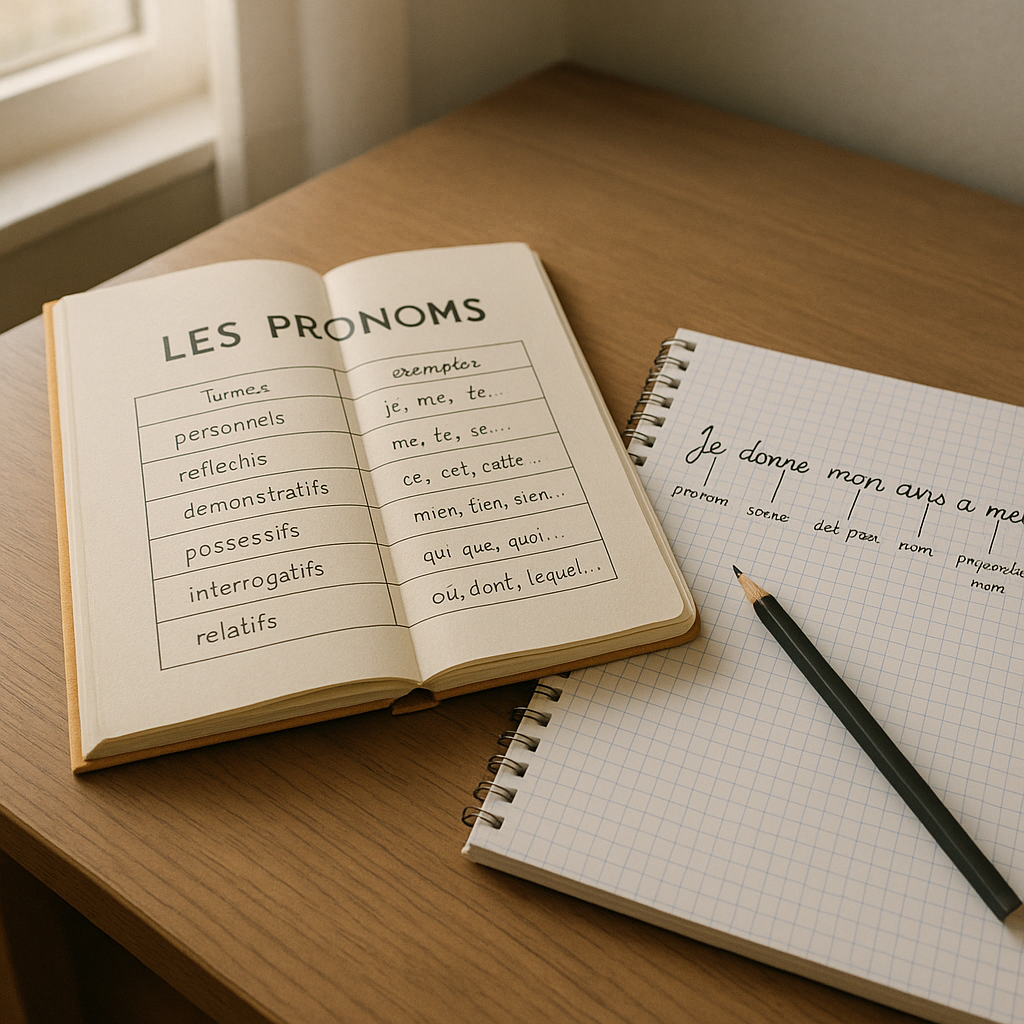 LES PRONOMS
Turmes exempter
personnels je, me, te...
reflechis me, te, se....
demonstratifs ce, cet, catte ...
possessifs mien, tien, sien...
interrogatifs qui que, quoi...
relatifs où, dont, lequel...
Je donne mon avis a mei
pronom
det
nom
mom